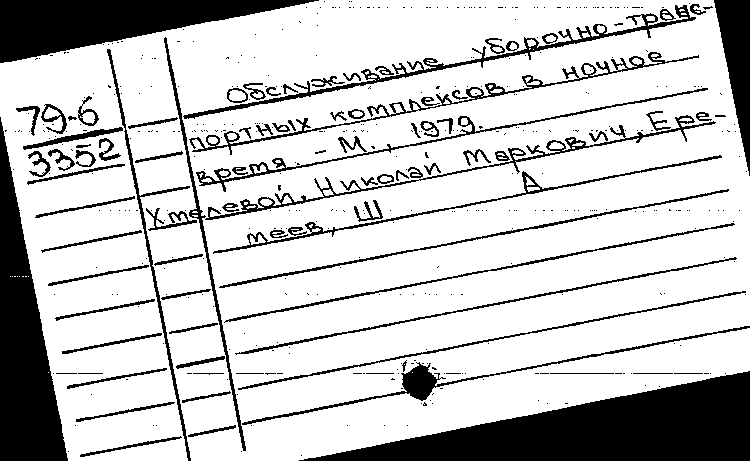 79-6
3352
Обслуживание уборочно-транс-
портных комплексов в ночное
время. - М., 1979.
Хмелевой, Николай Маркович, Ере-
меев, Ш А